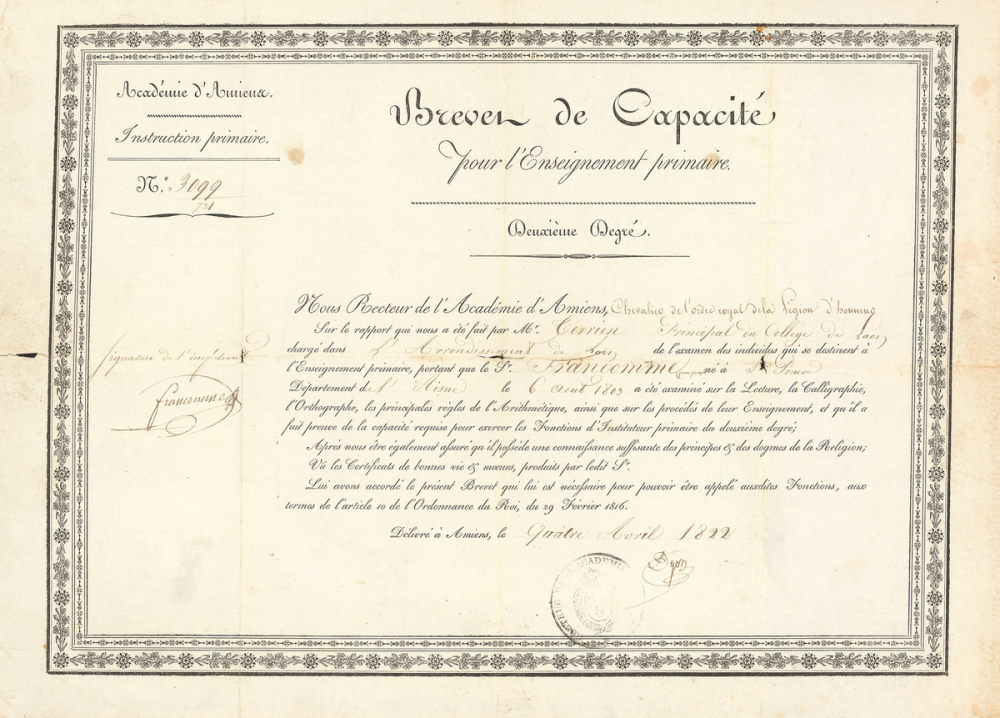 Académie d'Amiens.
Instruction primaire.
N.º 3099
731
Brevet de Capacité
pour l'Enseignement primaire.
Deuxième Degré.
Nous Recteur de l'Académie d'Amiens, Chevalier de l'ordre royal de la Légion d'honneur
Sur le rapport qui nous a été fait par Mr. Terrien Principal du College de Laon
chargé dans l'Arrondissement de Laon de l'examen des individus qui se destinent à
l'Enseignement primaire, portant que le Sr. Francomme né à
Département de l'Aisne le 6 Aout 1803 a été examiné sur la Lecture, la Calligraphie,
l'Orthographe, les principales règles de l'Arithmétique, ainsi que sur les procédés de leur Enseignement, et qu'il a
fait preuve de la capacité requise pour exercer les Fonctions d'Instituteur primaire de deuxième degré;
Après nous être également assuré qu'il possède une connaissance suffisante des principes & des dogmes de la Religion;
Vu les Certificats de bonnes vie & mœurs, produits par ledit Sr.
Lui avons accordé le présent Brevet qui lui est nécessaire pour pouvoir être appelé auxdites Fonctions, aux
termes de l'article 10 de l'Ordonnance du Roi, du 29 Février 1816.
Délivré à Amiens, le Quatre Avril 1822
signature de l'impétrant
francomme
ACADEMIE